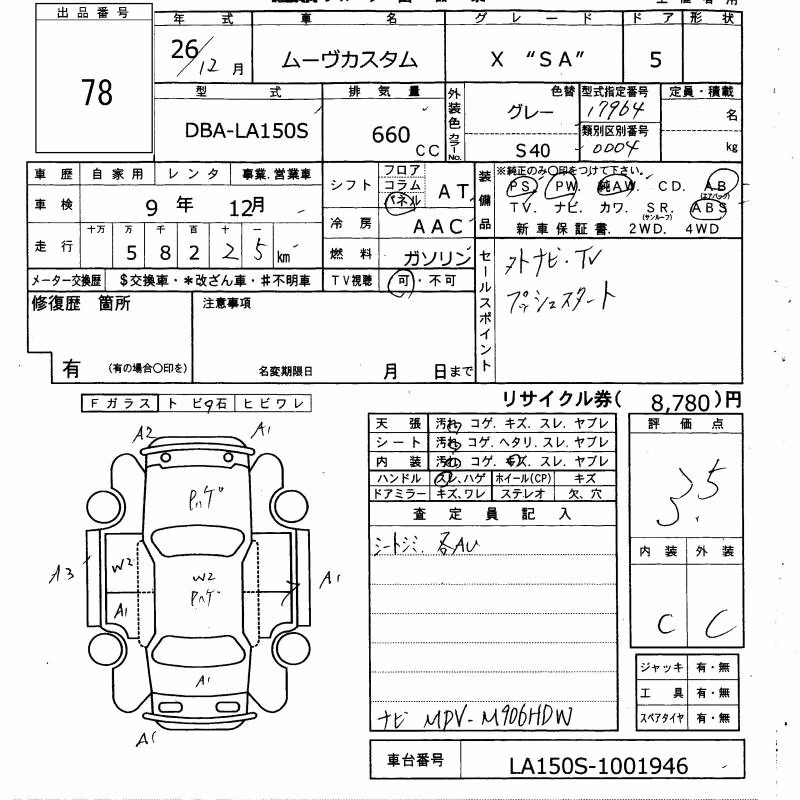 出品番号
78
年 式
車 名
グ レ ー ド
ド ア
形 状
26/12月
ムーヴカスタム
X “SA”
5
型 式
排 気 量
外装色
色替
型式指定番号
定員・積載
DBA-LA150S
660 CC
グレー
17964
名
カラーNo.
S40
類別区別番号
0004
kg
車 歴
自 家 用
レ ン タ
事業.営業車
シフト
フロア
コラム
パネル
AT
装備品
※純正のみ〇印をつけて下さい。
PS. PW. 純AW. CD. AB(エアバッグ)
車 検
9 年 12月
冷 房
AAC
TV. ナビ. カワ. SR.(サンルーフ) ABS
新 車 保 証 書. 2WD. 4WD
走 行
十万 万 千 百 十 一
5 8 2 2 5 km
燃 料
ガソリン
セールスポイント
外ナビ・TV
メーター交換歴
$交換車・*改ざん車・#不明車
TV視聴
可・不可
プッシュスタート
修復歴 箇所
注意事項
有
(有の場合〇印を)
名変期限日
月 日まで
リサイクル券( 8,780 )円
Fガラス
ト ビ 石
ヒビワレ
天 張
汚れ. コゲ. キズ. スレ. ヤブレ
評 価 点
3.5
シート
汚れ. コゲ. ヘタリ. スレ. ヤブレ
内 装
汚れ. コゲ. キズ. スレ. ヤブレ
ハンドル
スレ、ハゲ
ホイール(CP)
キズ
ドアミラー
キズ、ワレ
ステレオ
欠、穴
査 定 員 記 入
シートシミ. 各AU
ナビ MDV-M906HDW
内 装
外 装
C
C
A2
A1
Pハゲ
A3
W2
W2
Pハゲ
A1
A1
A1
A1
ジャッキ
有・無
工 具
有・無
スペアタイヤ
有・無
車台番号
LA150S-1001946